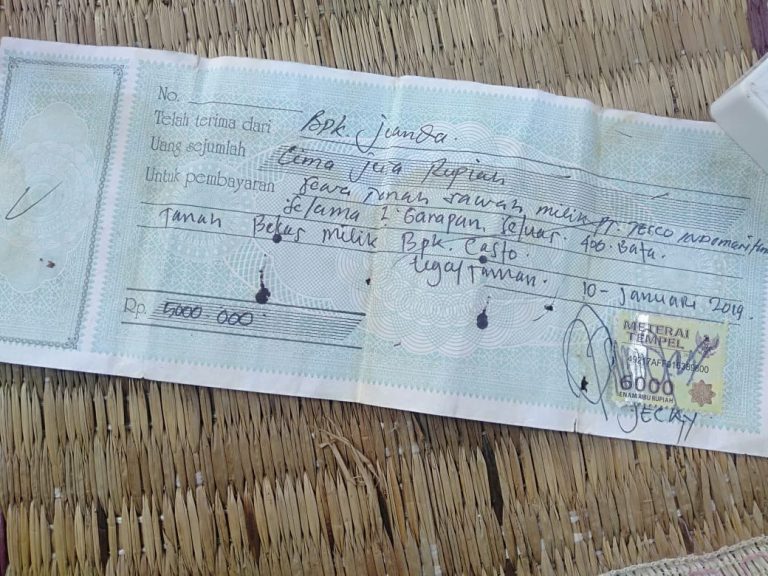 No.
Telah terima dari Bpk. Juanda.
Uang sejumlah Lima Juta Rupiah
Untuk pembayaran Sewa Tanah sawah milik PT. TESCO INDOMARITIM
Selama 1. Garapan. Seluas. 400. Bata.
Tanah Bekas milik Bpk. Casto.
tegal Taman.
10 - Januari 2019.
Rp. 5000 000
METERAI
TEMPEL
6000
ENAM RIBU RUPIAH
JECKY